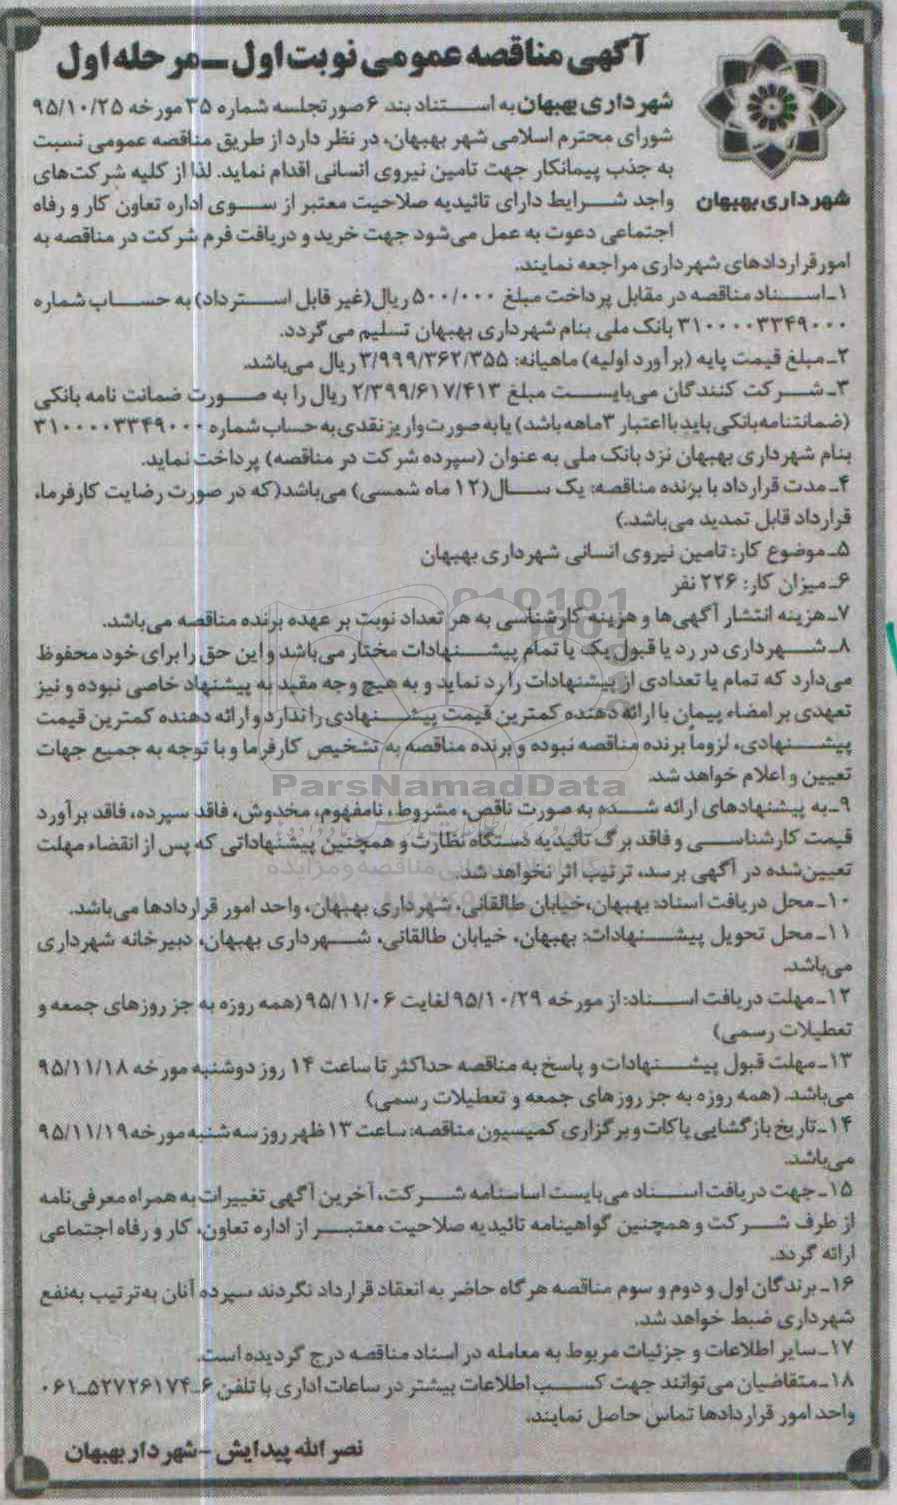 آگهی مناقصه عمومی نوبت اول ـ مرحله اول
شهرداری بهبهان
شهرداری بهبهان به استناد بند ۶ صورتجلسه شماره ۳۵ مورخه ۹۵/۱۰/۲۵
شورای محترم اسلامی شهر بهبهان، در نظر دارد از طریق مناقصه عمومی نسبت
به جذب پیمانکار جهت تامین نیروی انسانی اقدام نماید. لذا از کلیه شرکت‌های
واجد شرایط دارای تائیدیه صلاحیت معتبر از سوی اداره تعاون کار و رفاه
اجتماعی دعوت به عمل می‌شود جهت خرید و دریافت فرم شرکت در مناقصه به
امور قراردادهای شهرداری مراجعه نمایند.
۱ـ اسناد مناقصه در مقابل پرداخت مبلغ ۵۰۰/۰۰۰ ریال(غیر قابل استرداد) به حساب شماره
۳۱۰۰۰۰۳۳۴۹۰۰۰ بانک ملی بنام شهرداری بهبهان تسلیم می گردد.
۲ـ مبلغ قیمت پایه (برآورد اولیه) ماهیانه: ۳/۹۹۹/۳۶۲/۳۵۵ ریال می‌باشد.
۳ـ شرکت کنندگان می‌بایست مبلغ ۲/۳۹۹/۶۱۷/۴۱۳ ریال را به صورت ضمانت نامه بانکی
(ضمانتنامه بانکی باید با اعتبار ۳ماهه باشد) یا به صورت واریز نقدی به حساب شماره ۳۱۰۰۰۰۳۳۴۹۰۰۰
بنام شهرداری بهبهان نزد بانک ملی به عنوان (سپرده شرکت در مناقصه) پرداخت نماید.
۴ـ مدت قرارداد با برنده مناقصه: یک سال(۱۲ ماه شمسی) می‌باشد(که در صورت رضایت کارفرما،
قرارداد قابل تمدید می‌باشد.)
۵ـ موضوع کار: تامین نیروی انسانی شهرداری بهبهان
۶ـ میزان کار: ۲۲۶ نفر
۷ـ هزینه انتشار آگهی‌ها و هزینه کارشناسی به هر تعداد نوبت بر عهده برنده مناقصه می‌باشد.
۸ـ شهرداری در رد یا قبول یک یا تمام پیشنهادات مختار می‌باشد و این حق را برای خود محفوظ
می‌دارد که تمام یا تعدادی از پیشنهادات را رد نماید و به هیچ وجه مقید به پیشنهاد خاصی نبوده و نیز
تعهدی بر امضاء پیمان با ارائه دهنده کمترین قیمت پیشنهادی را ندارد و ارائه دهنده کمترین قیمت
پیشنهادی، لزوماً برنده مناقصه نبوده و برنده مناقصه به تشخیص کارفرما و با توجه به جمیع جهات
تعیین و اعلام خواهد شد.
ParsNamadData
۹ـ به پیشنهادهای ارائه شده به صورت ناقص، مشروط، نامفهوم، مخدوش، فاقد سپرده، فاقد برآورد
قیمت کارشناسی و فاقد برگ تائیدیه دستگاه نظارت و همچنین پیشنهاداتی که پس از انقضاء مهلت
تعیین‌شده در آگهی برسد، ترتیب اثر نخواهد شد.
۱۰ـ محل دریافت اسناد: بهبهان،خیابان طالقانی، شهرداری بهبهان، واحد امور قراردادها می‌باشد.
۱۱ـ محل تحویل پیشنهادات: بهبهان، خیابان طالقانی، شهرداری بهبهان، دبیرخانه شهرداری
می‌باشد.
۱۲ـ مهلت دریافت اسناد: از مورخه ۹۵/۱۰/۲۹ لغایت ۹۵/۱۱/۰۶ (همه روزه به جز روزهای جمعه و
تعطیلات رسمی)
۱۳ـ مهلت قبول پیشنهادات و پاسخ به مناقصه حداکثر تا ساعت ۱۴ روز دوشنبه مورخه ۹۵/۱۱/۱۸
می‌باشد. (همه روزه به جز روزهای جمعه و تعطیلات رسمی)
۱۴ـ تاریخ بازگشایی پاکات و برگزاری کمیسیون مناقصه: ساعت ۱۳ ظهر روز سه شنبه مورخه ۹۵/۱۱/۱۹
می‌باشد.
۱۵ـ جهت دریافت اسناد می‌بایست اساسنامه شرکت، آخرین آگهی تغییرات به همراه معرفی‌نامه
از طرف شرکت و همچنین گواهینامه تائیدیه صلاحیت معتبر از اداره تعاون، کار و رفاه اجتماعی
ارائه گردد.
۱۶ـ برندگان اول و دوم و سوم مناقصه هرگاه حاضر به انعقاد قرارداد نگردند سپرده آنان به‌ترتیب به‌نفع
شهرداری ضبط خواهد شد.
۱۷ـ سایر اطلاعات و جزئیات مربوط به معامله در اسناد مناقصه درج گردیده است.
۱۸ـ متقاضیان می‌توانند جهت کسب اطلاعات بیشتر در ساعات اداری با تلفن ۶ـ۵۲۷۲۶۱۷۴ـ۰۶۱
واحد امور قراردادها تماس حاصل نمایند.
نصرالله پیدایش - شهردار بهبهان